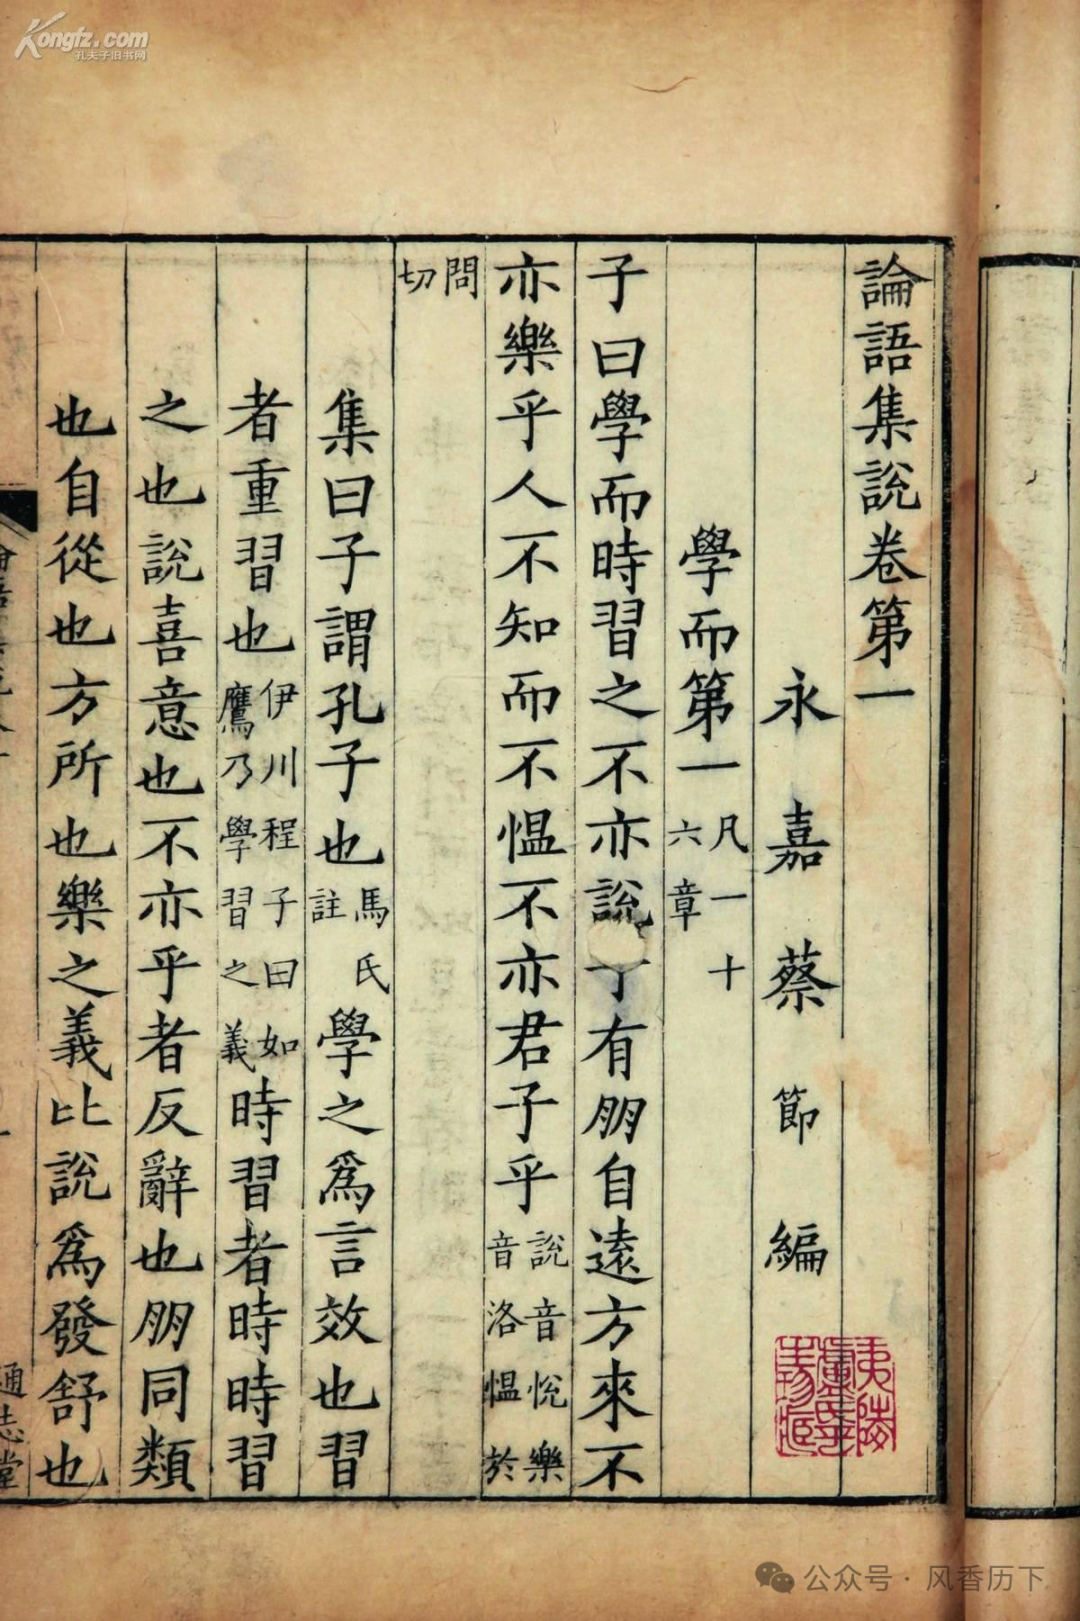 論語集說卷第一
永嘉蔡節編
學而第一凡一十六章
子曰學而時習之不亦說有朋自遠方來不
亦樂乎人不知而不愠不亦君子乎說音悅樂音洛愠於
問切
集曰子謂孔子也馬氏註學之爲言效也習
者重習也伊川程子曰如鷹乃學習之義時習者時時習
之也說喜意也不亦乎者反辭也朋同類
也自從也方所也樂之義比說爲發舒也
通志堂
夷陵
Kongfz.com
孔夫子旧书网
公众号·风香历下